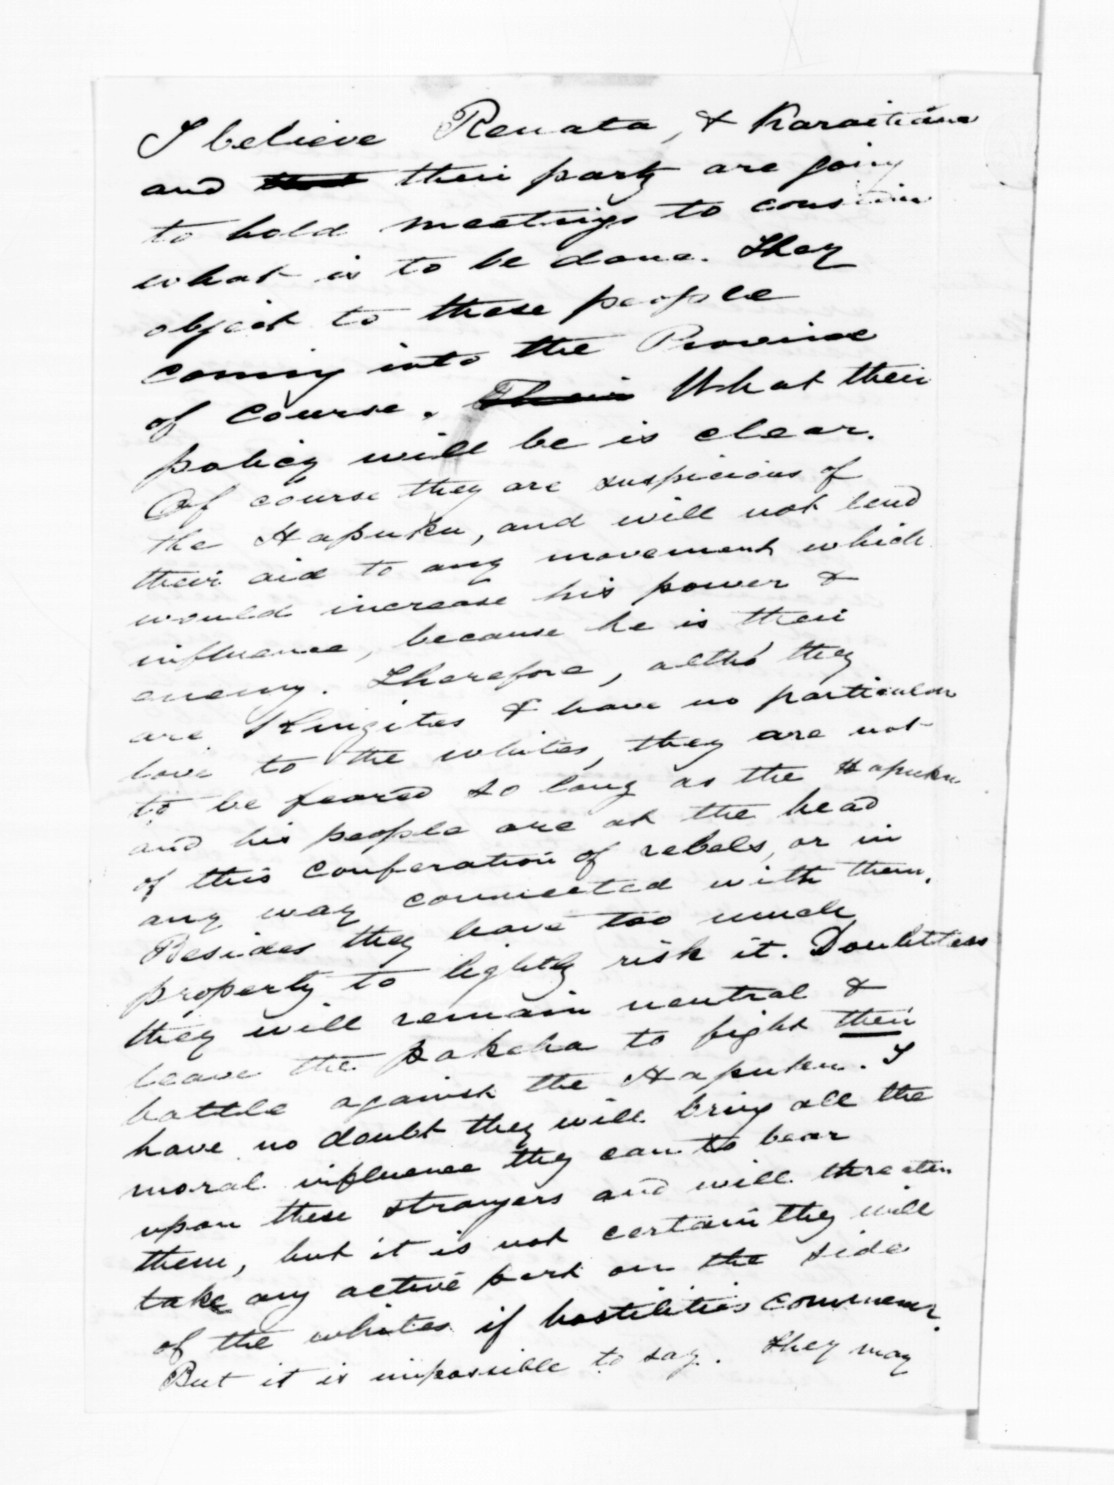 I believe Renata, & Karaitiana
and their party are going
to hold meetings to consider
what is to be done. They
object to these people
coming into the Province
of course. Their What their
policy will be is clear.
Of course they are suspicious of
the Hapuku, and will not lend
their aid to any movement which
would increase his power &
influence, because he is their
enemy. Therefore, altho' they
are Kingites & have no particular
love to the whites, they are not
to be feared so long as the Hapuku
and his people are at the head
of this conferation of rebels, or in
any way connected with them.
Besides they have too much
property to lightly risk it. Doubtless
they will remain neutral &
leave the pakeha to fight their
battle against the Hapuku. I
have no doubt they will bring all the
moral influence they can to bear
upon these strangers and will threaten
them, but it is not certain they will
take any active part on the side
of the whites if hostilities commence.
But it is impossible to say. They may